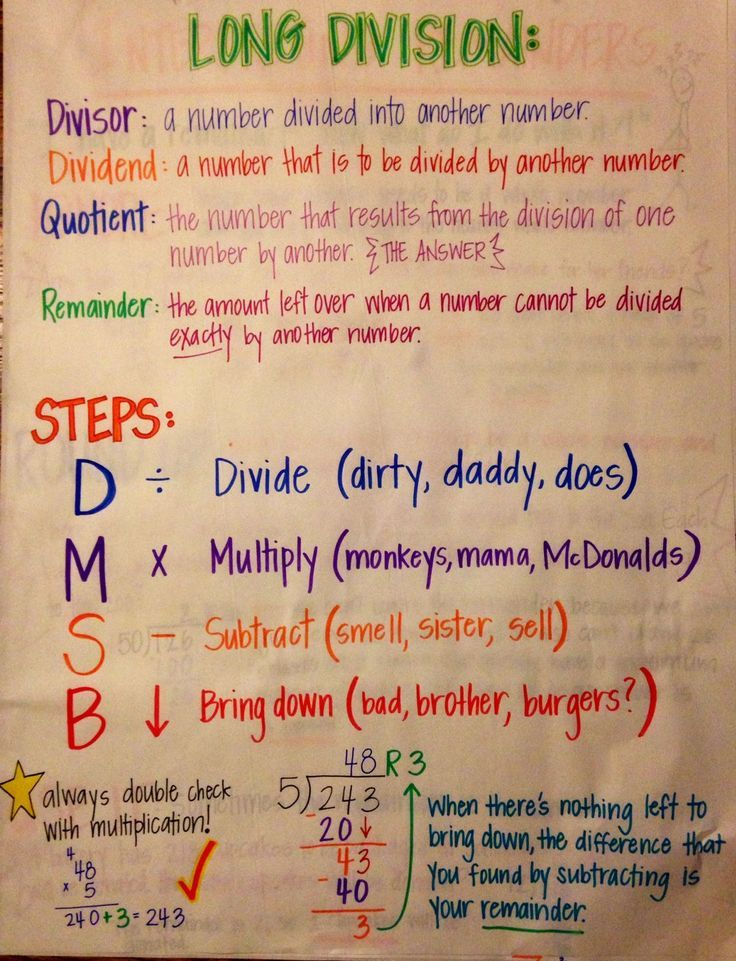 LONG DIVISION:
Divisor: a number divided into another number.
Dividend: a number that is to be divided by another number.
Quotient: the number that results from the division of one
number by another. {THE ANSWER}
Remainder: the amount left over when a number cannot be divided
exactly by another number.
STEPS:
D ÷ Divide (dirty, daddy, does)
M x Multiply (monkeys, mama, McDonalds)
S - Subtract (smell, sister, sell)
B ↓ Bring down (bad, brother, burgers?)
always double check
with multiplication!
4
48
x 5
240+3=243
48 R3
5)243
-20↓
43
-40
3
When there's nothing left to
bring down, the difference that
you found by subtracting is
your remainder.